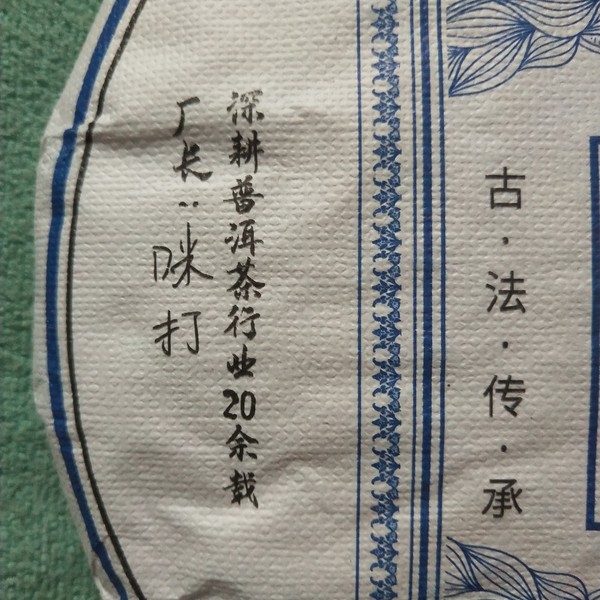 古·法·传·承
深耕普洱茶行业20余载
厂长：咪打